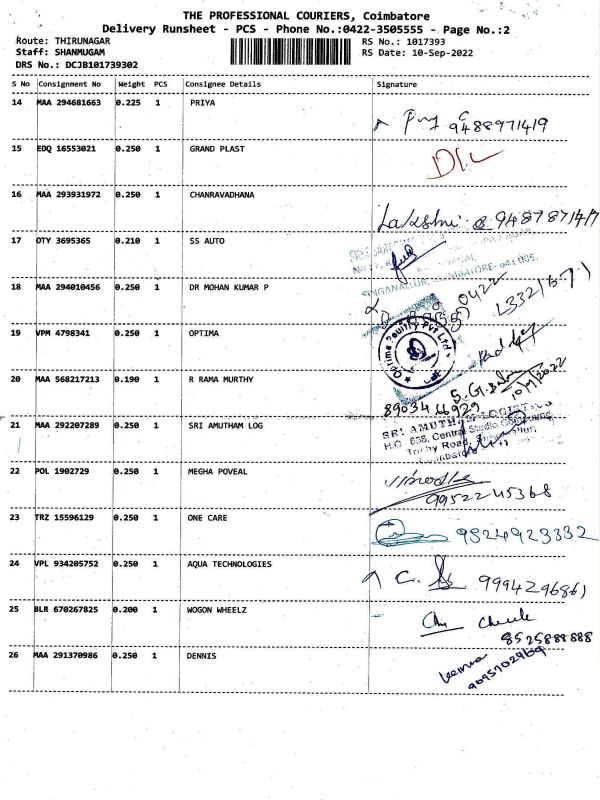 THE PROFESSIONAL COURIERS, Coimbatore
Delivery Runsheet - PCS - Phone No.:0422-3505555 - Page No.:2
Route: THIRUNAGAR RS No.: 1017393
Staff: SHANMUGAM RS Date: 10-Sep-2022
DRS No.: DCJB101739302
S No Consignment No Weight PCS Consignee Details Signature
14 MAA 294681663 0.225 1 PRIYA
9488971419
15 EDQ 16553021 0.250 1 GRAND PLAST
16 MAA 293931972 0.250 1 CHANRAVADHANA
Lakshmi @ 9487871477
17 OTY 3695365 0.210 1 SS AUTO
18 MAA 294010456 0.250 1 DR MOHAN KUMAR P
0422
19 VPM 4798341 0.250 1 OPTIMA
Optima Poultry Pvt Ltd
20 MAA 568217213 0.190 1 R RAMA MURTHY
10/9/2022
8903466929
21 MAA 292207289 0.250 1 SRI AMUTHAM LOG
SRI AMUTHAM LOGISTICS
H.O 658, Central Studio Compound
Trichy Road
22 POL 1902729 0.250 1 MEGHA POVEAL
9952245368
23 TRZ 15596129 0.250 1 ONE CARE
9524923332
24 VPL 934205752 0.250 1 AQUA TECHNOLOGIES
9994296861
25 BLR 670267825 0.200 1 WOGON WHEELZ
8525888888
26 MAA 291370986 0.250 1 DENNIS
9095702969